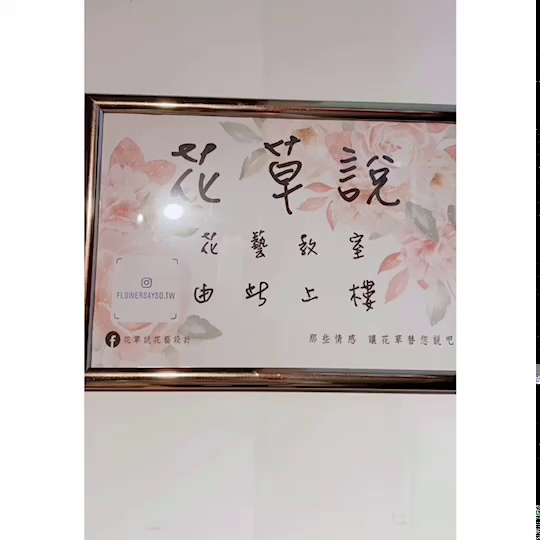 花草說
花藝教室
由此上樓
FLOWERSAYSO.TW
花草說花藝設計
那些情感 讓花草替您說吧